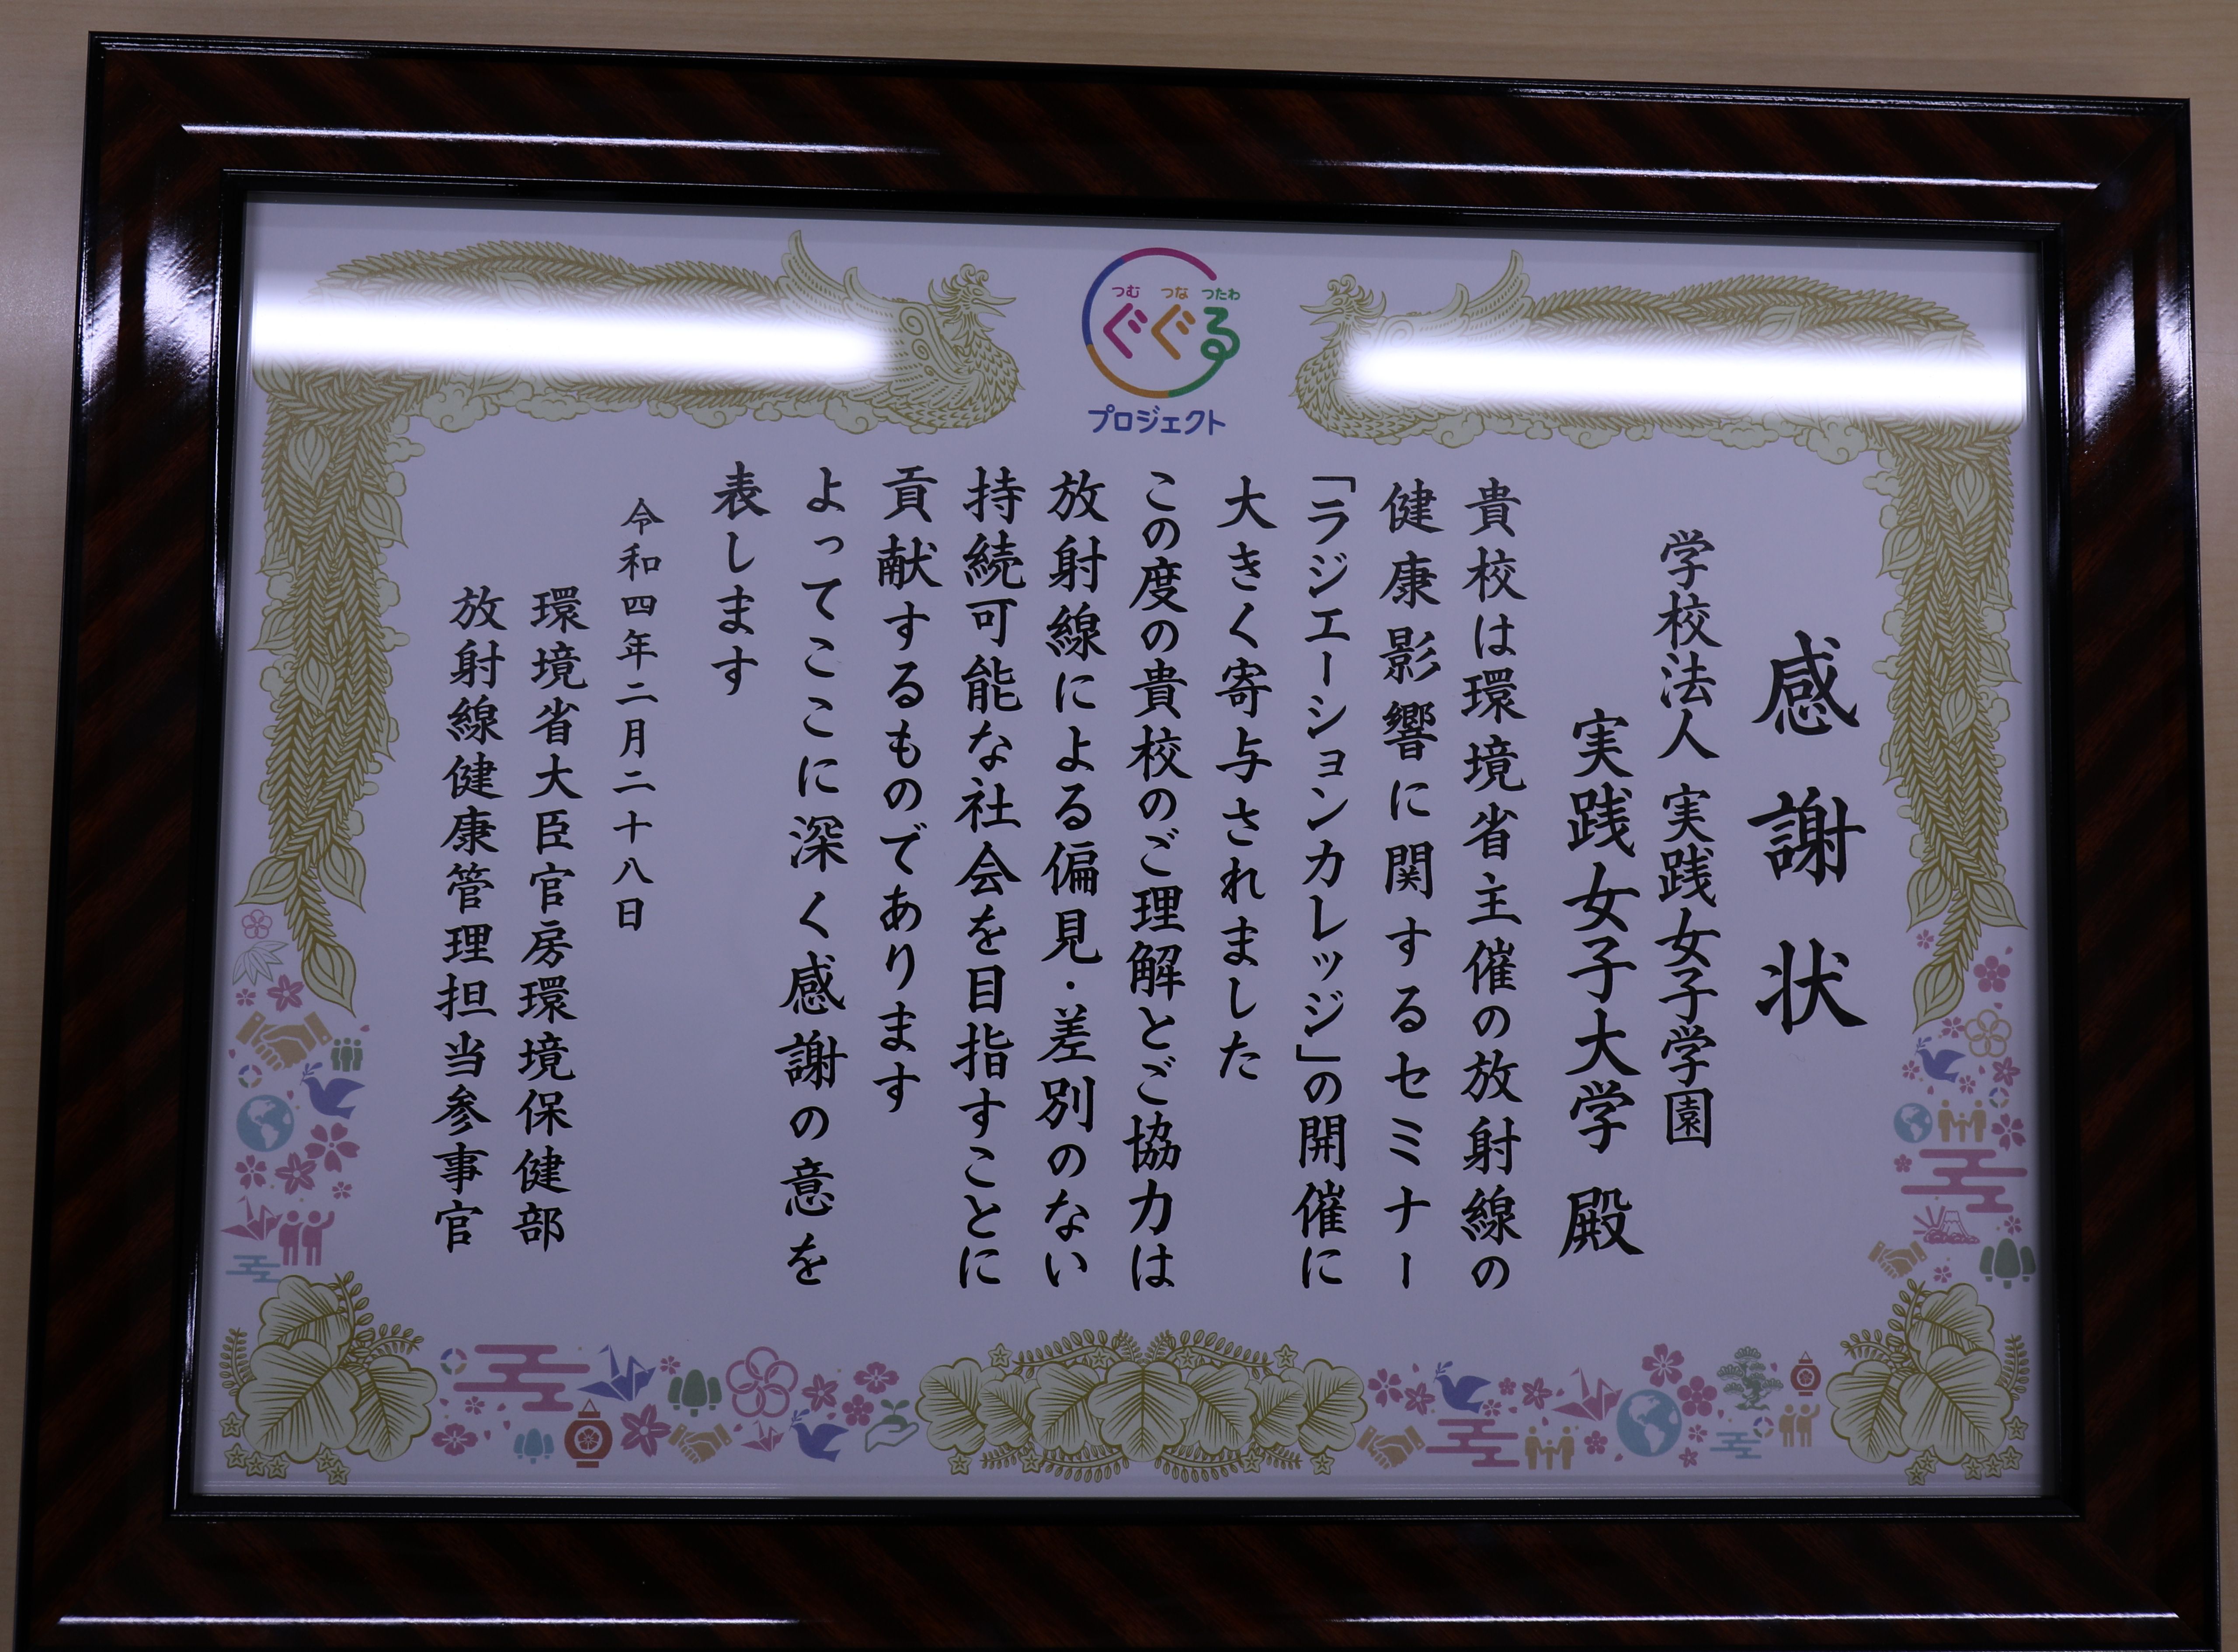 つむ つな つたわ
ぐぐる
プロジェクト
感謝状
学校法人 実践女子学園
実践女子大学 殿
貴校は環境省主催の放射線の
健康影響に関するセミナー
「ラジエーションカレッジ」の開催に
大きく寄与されました
この度の貴校のご理解とご協力は
放射線による偏見・差別のない
持続可能な社会を目指すことに
貢献するものであります
よってここに深く感謝の意を
表します
令和四年二月二十八日
環境省大臣官房環境保健部
放射線健康管理担当参事官